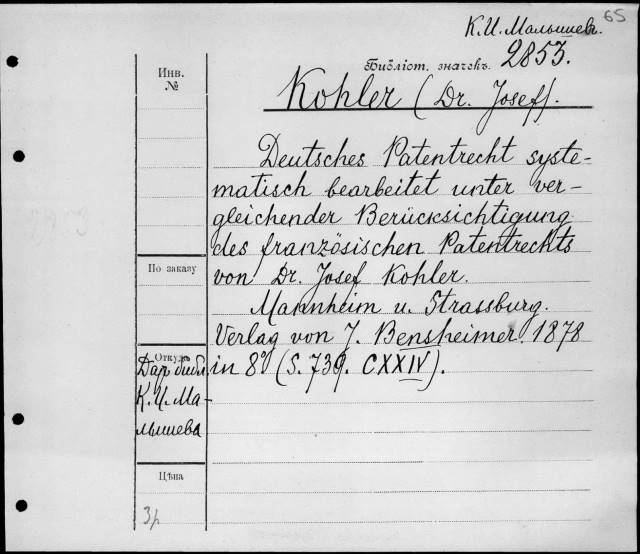 65
К. И. Малышевъ.
Библіот. значекъ. 2853.
Инв.
№
Kohler (Dr. Josef).
Deutsches Patentrecht syste-
matisch bearbeitet unter ver-
gleichender Berücksichtigung
des französischen Patentrechts
von Dr. Josef Kohler.
Mannheim u. Strassburg.
Verlag von J. Bensheimer. 1878
in 8º (S. 739. CXXIV).
По заказу
Откуда
Дар. библ.
К. И. Ма-
лышева
Цѣна
3р